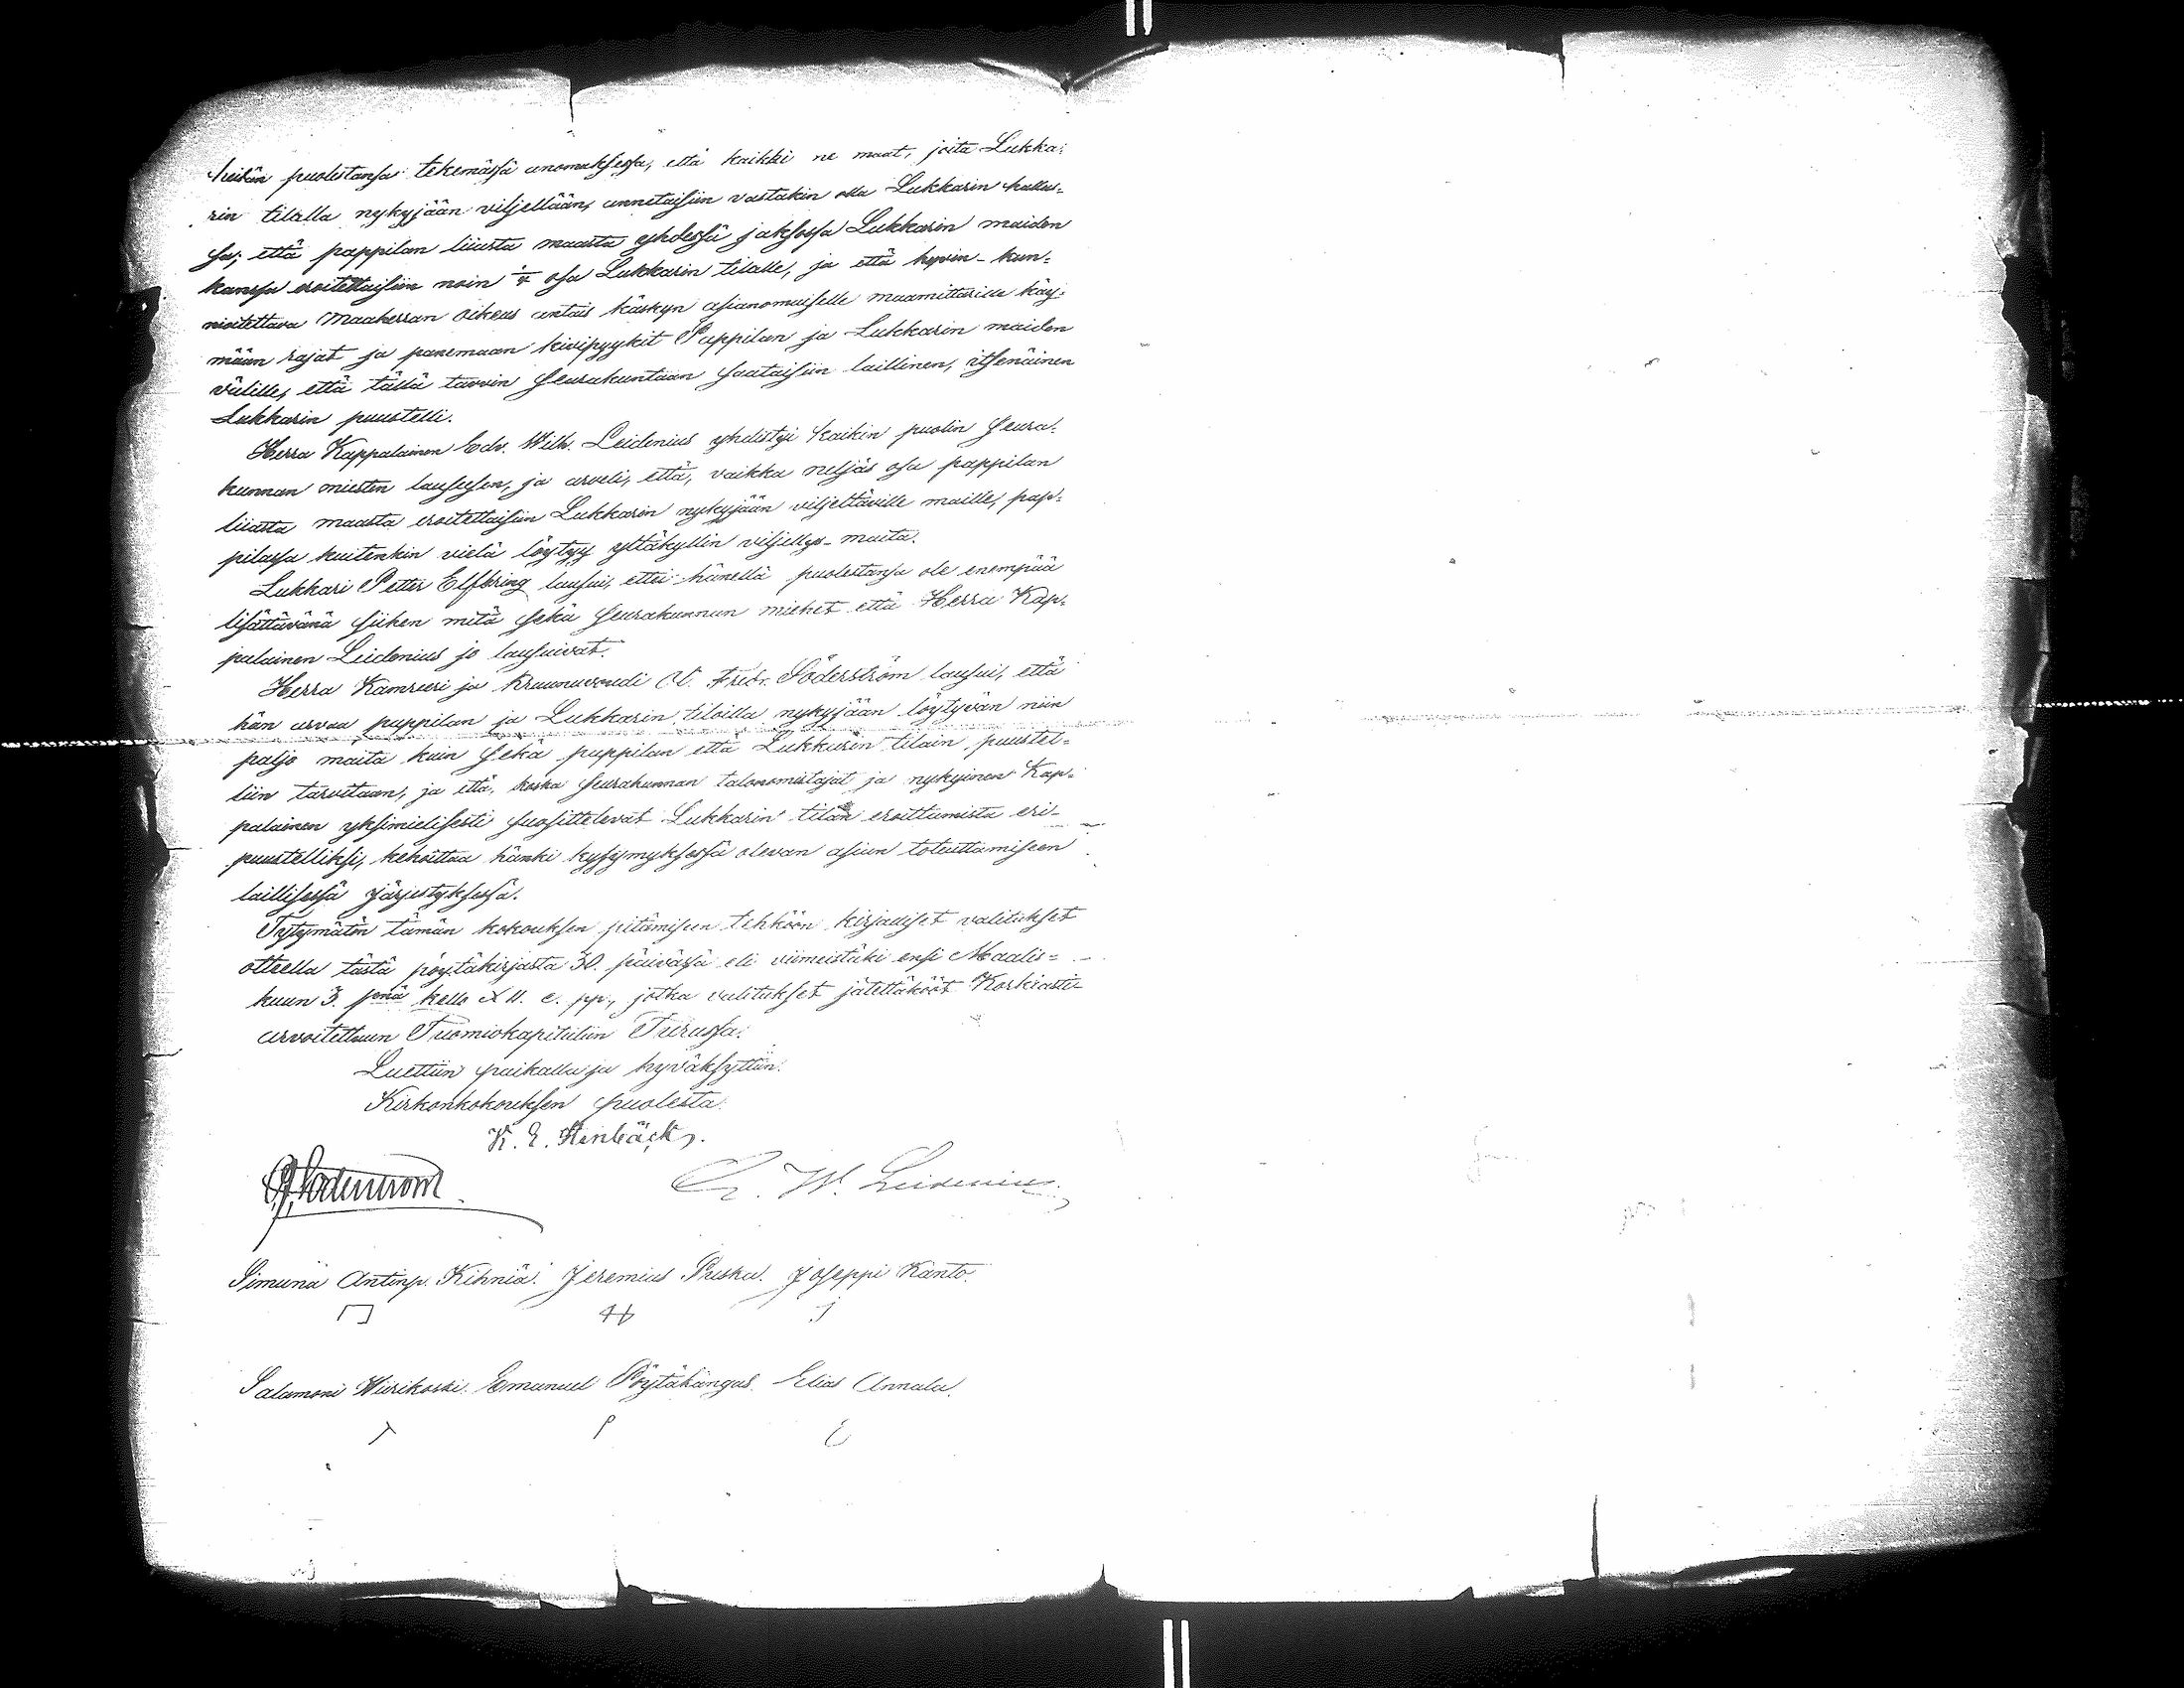 heidän puolestansa tekemässä anomuksessa, että kaikki ne maat, joita Lukka-
rin tilalla nykyjään viljellään, annettaisiin vastakin olla Lukkarin hallus-
sa; että pappilan liiasta maasta yhdessä jaksossa Lukkarin maiden
kanssa eroitettaisiin noin ¼ osa Lukkarin tilalle, ja että hyvin-kun-
nioitettava Maaherran Oikeus antais käskyn asianomaiselle maamittarille käy-
mään rajat ja panemaan kivipyykit Pappilan ja Lukkarin maiden
välille, että tällä tavvin Seurakuntaan saataisiin laillinen, itsenäinen
Lukkarin puustelli.
Herra Kappalainen Edv. Wilh. Leidenius yhdistyi kaikin puolin Seura-
kunnan miesten lauseesen, ja arveli, että, vaikka neljäs osa pappilan
liiasta maasta eroitettaisiin Lukkarin nykyjään viljeltäville maille, pap-
pilassa kuitenkin vielä löytyy yltäkyllin viljellys-maita.
Lukkari Petter Elfving lausui, ettei hänellä puolestansa ole enempää
lisättävänä siihen mitä sekä Seurakunnan miehet että Herra Kap-
palainen Leidenius jo lausuivat.
Herra Kamreeri ja Kruunuvoudi O. Fredr. Söderström lausui, että
hän arvaa pappilan ja Lukkarin tiloilla nykyjään löytyvän niin
paljo maita kuin sekä pappilan että Lukkarin tilain puustel-
liin tarvitaan, ja että, koska Seurakunnan talonomistajat ja nykyinen Kap-
palainen yksimielisesti suosittelevat Lukkarin tilan eroittamista eri-
puustelliksi, kehoittaa hänki kysymyksessä olevan asian toteuttamiseen
laillisessä järjestyksessä.
Tytymätön tämän kokouksen pitämiseen tehköön kirjalliset valitukset
otteella tästä pöytäkirjasta 30. päivässä eli viimeistäki ensi Maalis-
kuun 3. pnä kello XII. e. pp., jotka valitukset jätettäkööt Korkiasti-
arvoitettuun Tuomiokapituliin Turussa.
Luettiin paikalla ja hyväksyttiin.
Kirkonkokouksen puolesta.
K. E. Stenbäck.
O. F. Söderström. E. W. Leidenius.
Simuna Antinp. Kihniä. Jeremias Prisku. Joseppi Känto.
Salamoni Wiirikoski. Emanuel Pöytäkangas. Elias Annala.